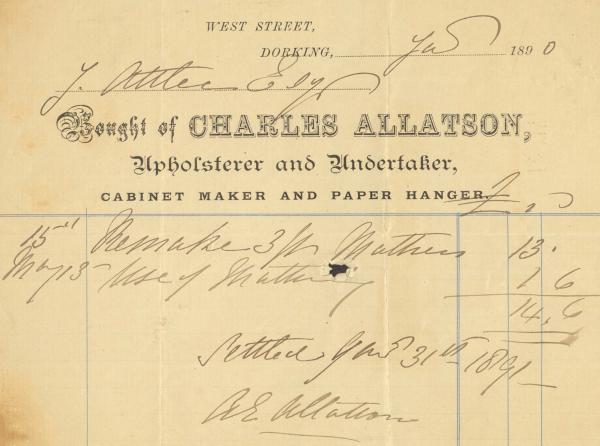 WEST STREET,
DORKING, Jan 1890
J. Attlee Esq
Bought of CHARLES ALLATSON,
Upholsterer and Undertaker,
CABINET MAKER AND PAPER HANGER.
15 Remake 3 ft 13.
May 13 Use of 1 6
14,6
Settled Jany 31st 1891
Allatson